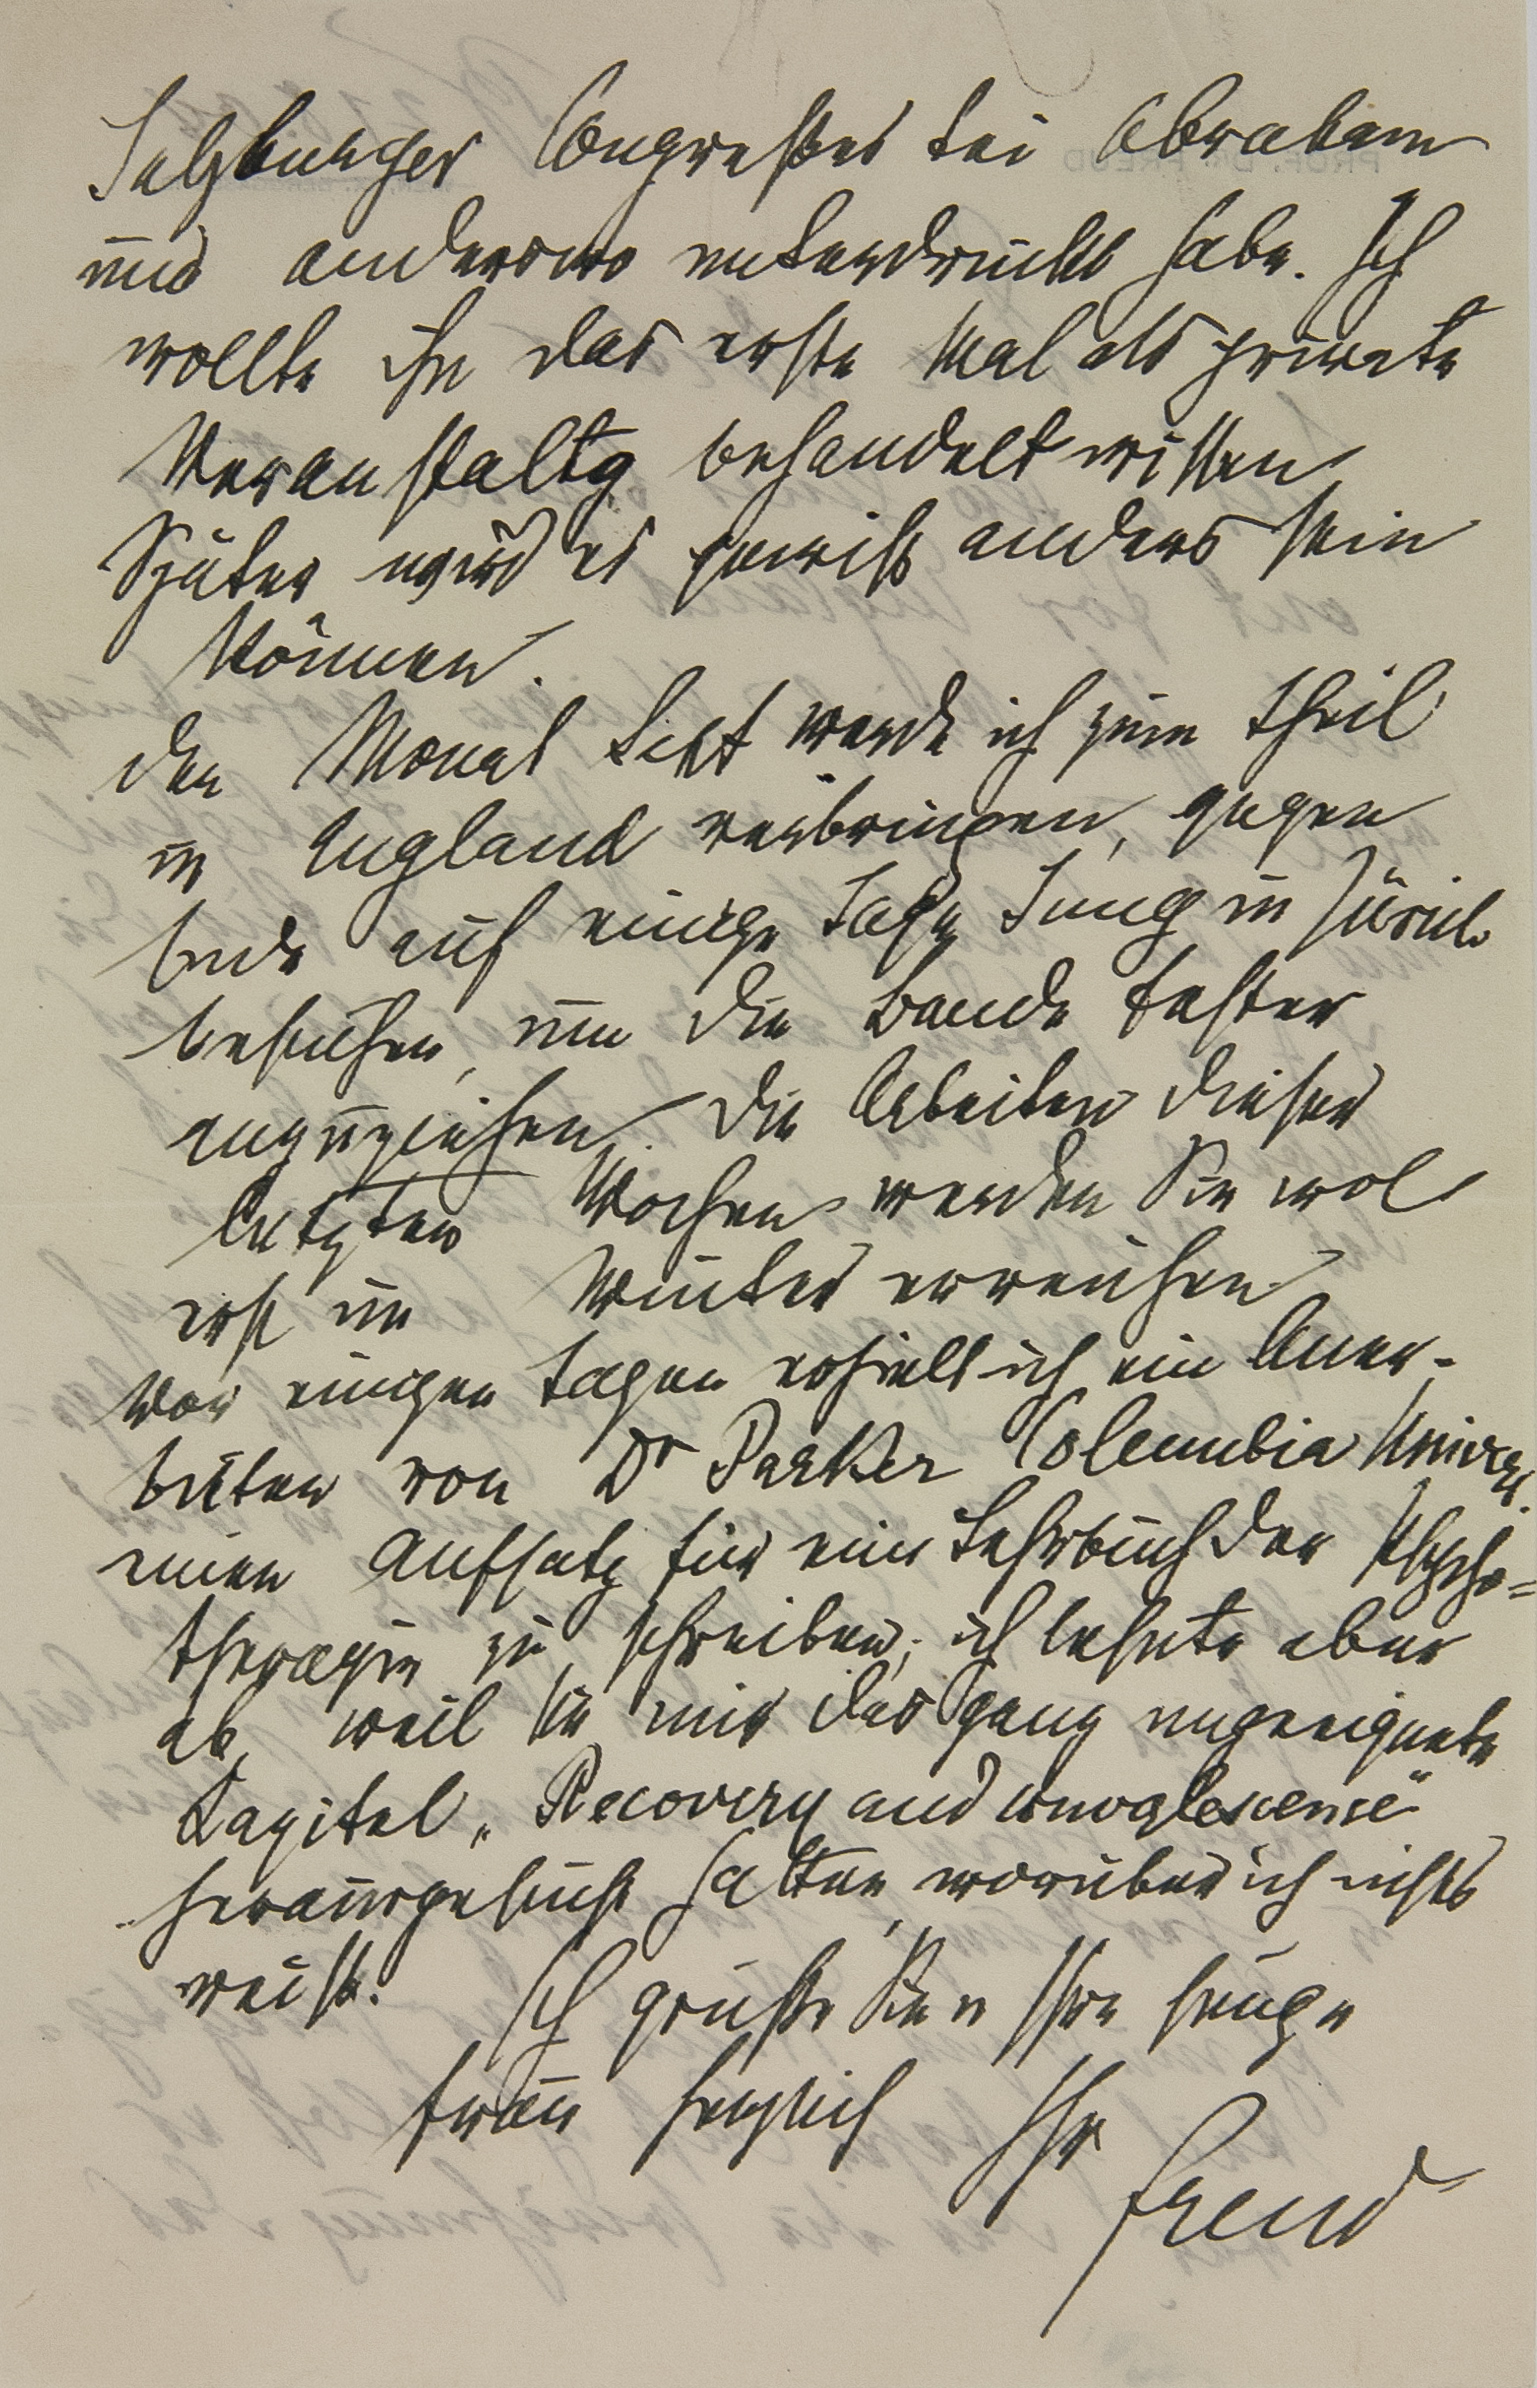 Salzburger Congresses bei Abraham
und anderswo unterdrückt habe. Ich
wollte ihn das erste Mal als private
Veranstaltg behandelt wissen
Später wird es gewiß anders sein
können.
Den Monat Sept werde ich zum Theil
in England verbringen, gegen
Ende auf einige Tage Jung in Zürich
besuchen, um die Bande fester
anzuziehen. Die Arbeiten dieser
letzten Wochen werden Sie wol
erst im Winter erreichen
Vor einigen Tagen erhielt ich ein Aner-
bieten von Dr Parker Columbia Univers.
einen Aufsatz für ein Lehrbuch der Psycho=
therapie zu schreiben; ich lehnte aber
ab, weil sie mir das ganz ungeeignete
Kapitel „Recovery and convalescence“
herausgesucht hatten, worüber ich nichts
weiß.
Ich grüße Sie u Ihre junge
Frau herzlich Ihr
Freud
PROF. Dr FREUD